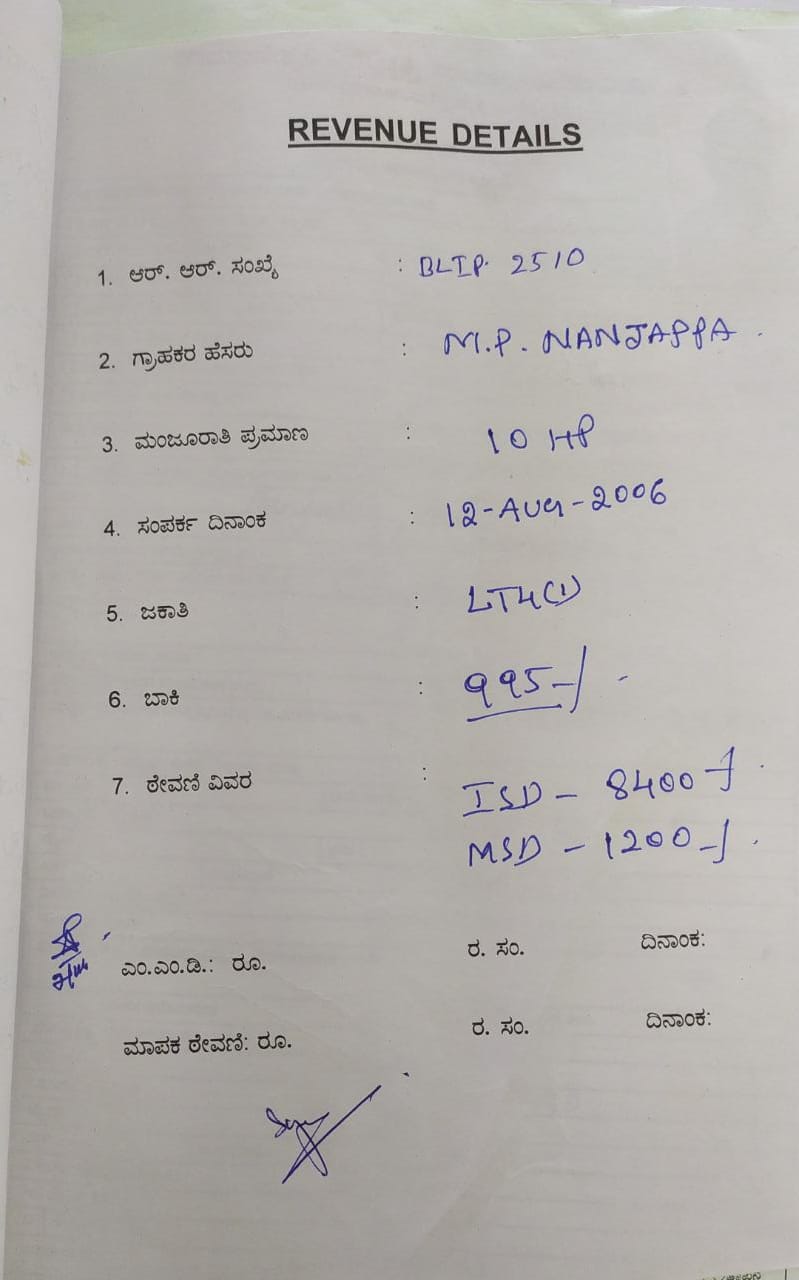 REVENUE DETAILS
1. ಆರ್. ಆರ್. ಸಂಖ್ಯೆ : BLIP 2510
2. ಗ್ರಾಹಕರ ಹೆಸರು : M.P. NANJAPPA.
3. ಮಂಜೂರಾತಿ ಪ್ರಮಾಣ : 10 HP
4. ಸಂಪರ್ಕ ದಿನಾಂಕ : 12-AUG-2006
5. ಜಕಾತಿ : LT4(1)
6. ಬಾಕಿ : 995-/
7. ಠೇವಣಿ ವಿವರ : ISD - 8400-/
MSD - 1200-/
ಎಂ.ಎಂ.ಡಿ.: ರೂ. ರ. ಸಂ. ದಿನಾಂಕ:
ಮಾಪಕ ಠೇವಣಿ: ರೂ. ರ. ಸಂ. ದಿನಾಂಕ: